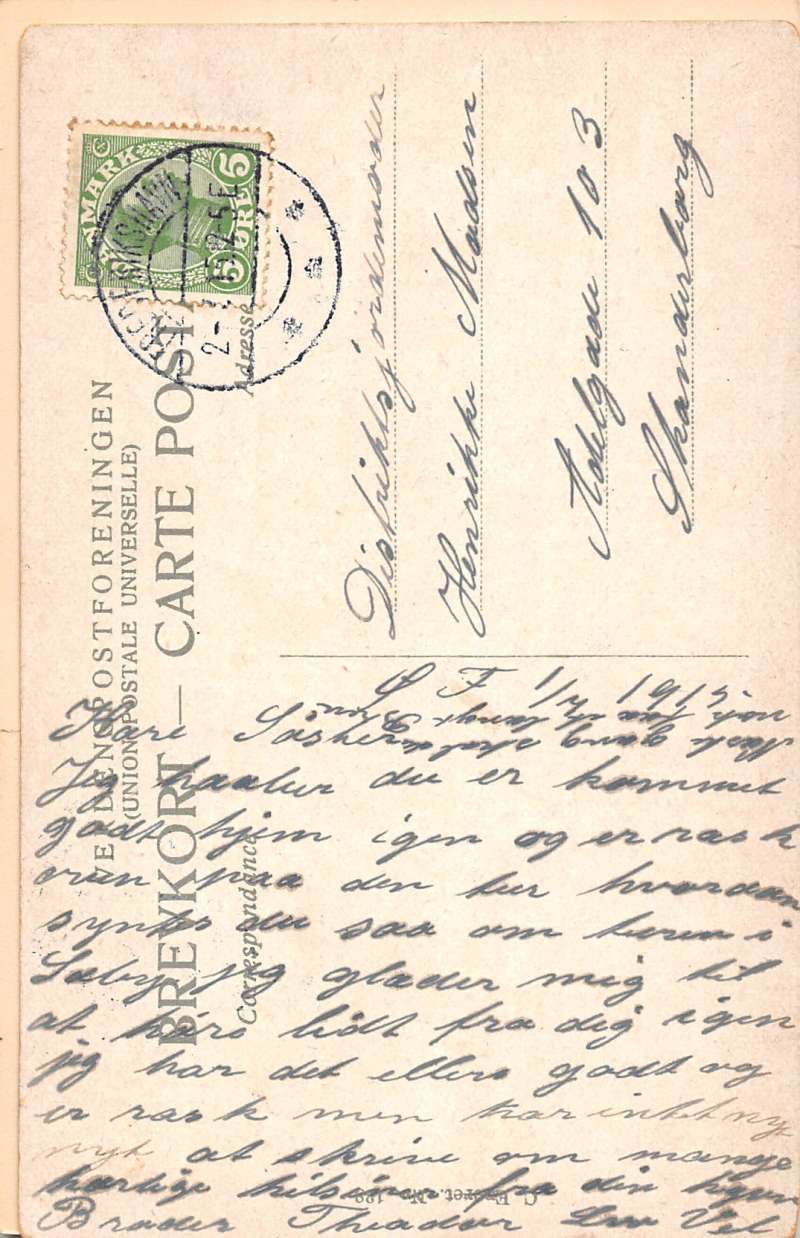 VERDENSPOSTFORENINGEN
(UNION POSTALE UNIVERSELLE)
BREVKORT — CARTE POSTALE
Correspondance
Adresse
DANMARK
5 ØRE 5
FREDERIKSHAVN
15.12-5E
Distriktsjordemoder
Henrikke Madsen
Adelgade 103
Skanderborg
1915
Kære Söster
Jeg haaber du er kommet
godt hjem igen og er rask
oven paa den tur hvordan
syntes du saa om turen i
Sæby jeg glæder mig til
at höre lidt fra dig igen
jeg har det ellers godt og
er rask men har intet nyt
nyt at skrive om mange
kærlige hilsner fra din
Broder Theador Lev Vel